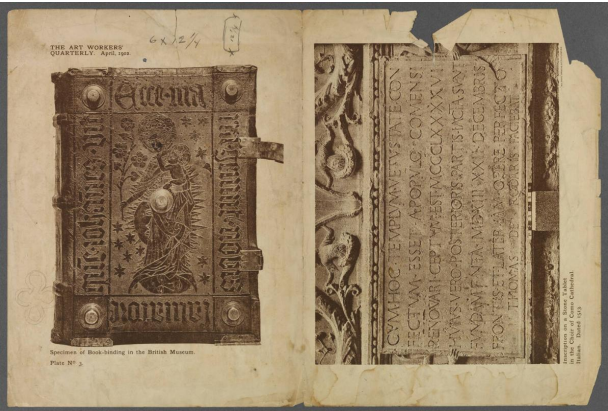 THE ART WORKERS'
QUARTERLY. April, 1902
6 x 12 1/4
Ecce ma
Specimen of Book-binding in the British Museum.
Plate Nº 3.
CVM HOC TEMPLVM VETVSTATE CON
FECTVM ESSET A POPVLO COMENSI
RENOVARI CEPTVM EST MCCCLXXXXVI
HVIVS VERO POSTERIORIS PARTIS IACTA SVNT
FVNDAMENTA MDXIII XXII DECEMBRIS
FRONTIS ET LATERVM IAM OPERE PERFECTO
THOMAS DE RODARIIS FACIEBAT
Inscription on a Stone Tablet
in the Choir of Como Cathedral.
Italian. Dated 1513